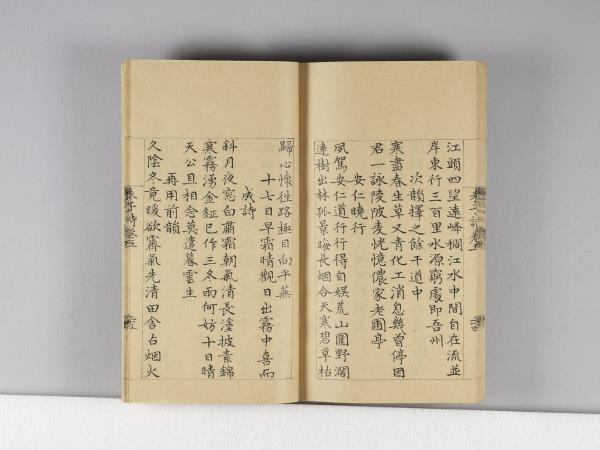 江頭四望遠峰稠江水中間自在流並
岸東行三百里水源窮處即吾州
次韻擇之餘干道中
寒盡春生草又青化工消息幾曾停因
君一詠陵陂麦恍憶儂家老圃亭
安仁曉行
夙駕安仁道行行得自娱荒山圍野濶
遠樹出林孤景晦長烟合天寒碧草枯
歸心懷徃路極目向平蕪
十七日早霜晴觀日出霧中喜而
成詩
斜月夜窓白肅霜朝氣清長湟披素錦
寒霧湧金鉦已作三冬雨何妨十日晴
天公且相念莫遣暮雲生
再用前韻
久陰冬竟暖欲霽氣先清田舍占烟火